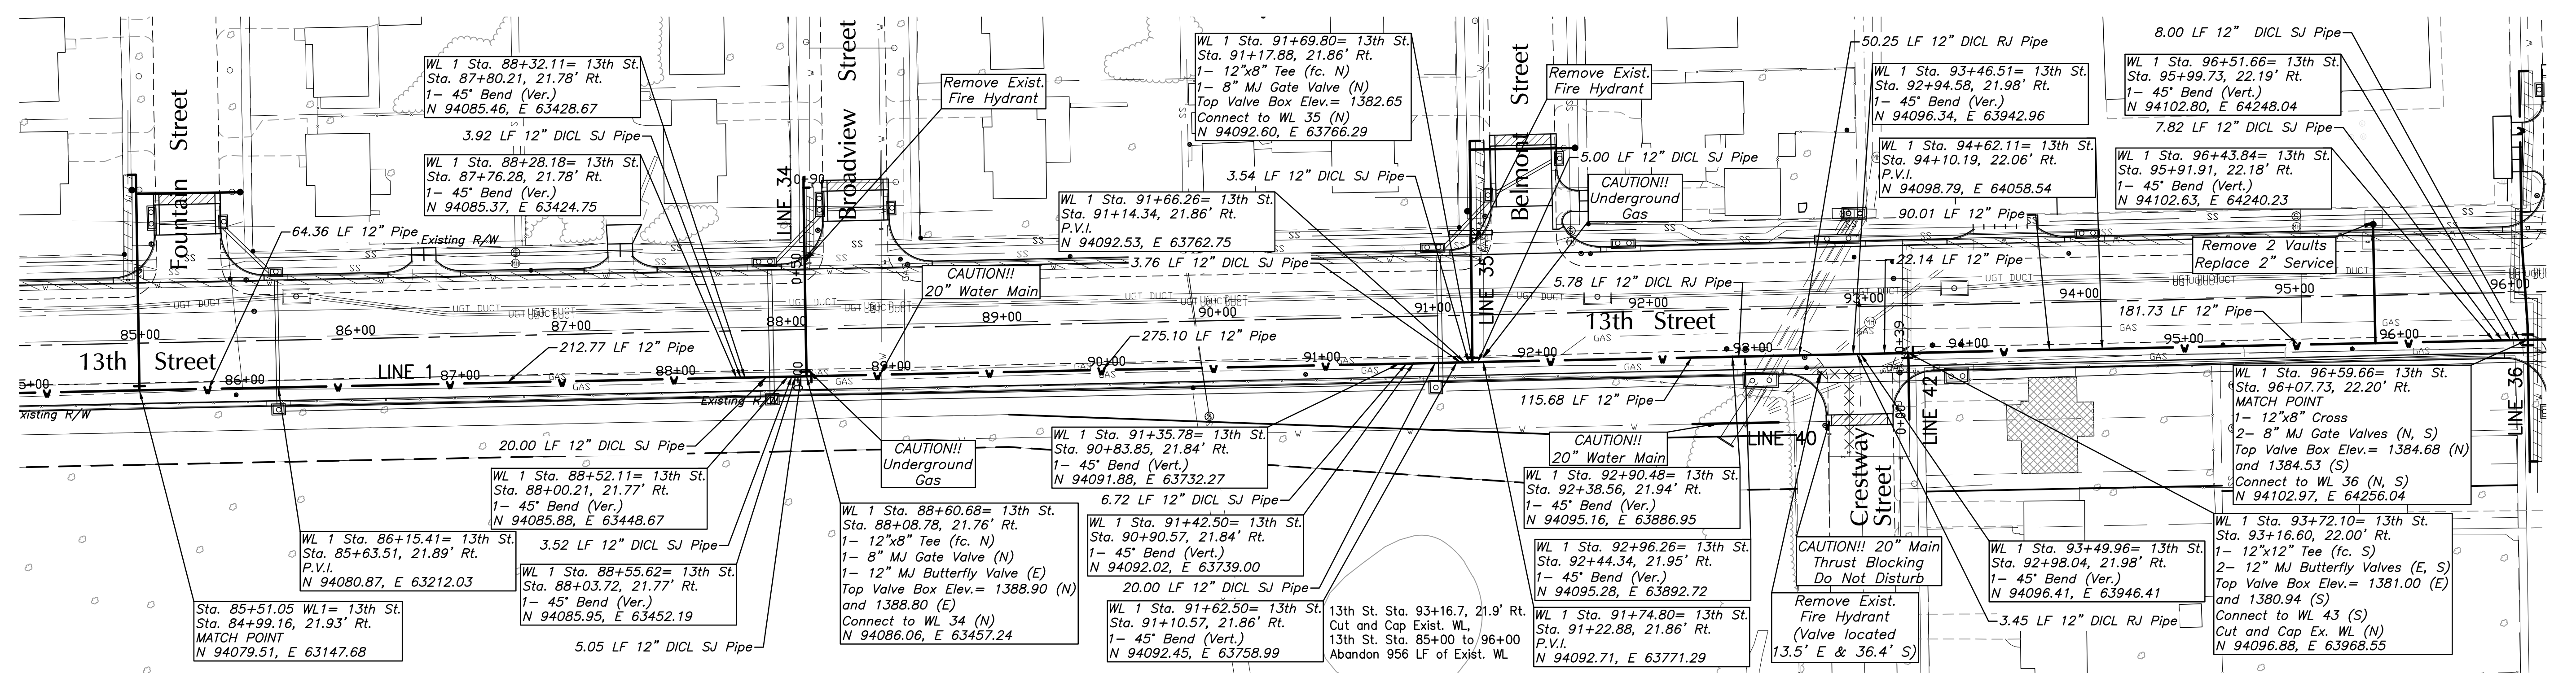 WL 1 Sta. 88+32.11= 13th St.
Sta. 87+80.21, 21.78' Rt.
1- 45° Bend (Ver.)
N 94085.46, E 63428.67
3.92 LF 12" DICL SJ Pipe
WL 1 Sta. 88+28.18= 13th St.
Sta. 87+76.28, 21.78' Rt.
1- 45° Bend (Ver.)
N 94085.37, E 63424.75
Fountain Street
64.36 LF 12" Pipe
Existing R/W
LINE 34
0+90
0+50
0+00
Broadview Street
Remove Exist.
Fire Hydrant
CAUTION!!
20" Water Main
WL 1 Sta. 91+69.80= 13th St.
Sta. 91+17.88, 21.86' Rt.
1- 12"x8" Tee (fc. N)
1- 8" MJ Gate Valve (N)
Top Valve Box Elev.= 1382.65
Connect to WL 35 (N)
N 94092.60, E 63766.29
3.54 LF 12" DICL SJ Pipe
WL 1 Sta. 91+66.26= 13th St.
Sta. 91+14.34, 21.86' Rt.
P.V.I.
N 94092.53, E 63762.75
3.76 LF 12" DICL SJ Pipe
LINE 35
Belmont Street
Remove Exist.
Fire Hydrant
5.00 LF 12" DICL SJ Pipe
CAUTION!!
Underground
Gas
5.78 LF 12" DICL RJ Pipe
50.25 LF 12" DICL RJ Pipe
WL 1 Sta. 93+46.51= 13th St.
Sta. 92+94.58, 21.98' Rt.
1- 45° Bend (Ver.)
N 94096.34, E 63942.96
WL 1 Sta. 94+62.11= 13th St.
Sta. 94+10.19, 22.06' Rt.
P.V.I.
N 94098.79, E 64058.54
90.01 LF 12" Pipe
22.14 LF 12" Pipe
8.00 LF 12" DICL SJ Pipe
WL 1 Sta. 96+51.66= 13th St.
Sta. 95+99.73, 22.19' Rt.
1- 45° Bend (Vert.)
N 94102.80, E 64248.04
7.82 LF 12" DICL SJ Pipe
WL 1 Sta. 96+43.84= 13th St.
Sta. 95+91.91, 22.18' Rt.
1- 45° Bend (Vert.)
N 94102.63, E 64240.23
Remove 2 Vaults
Replace 2" Service
181.73 LF 12" Pipe
UGT DUCT
UGT DUCT
85+00
86+00
87+00
88+00
89+00
90+00
91+00
92+00
93+00
94+00
95+00
96+00
13th Street
13th Street
212.77 LF 12" Pipe
275.10 LF 12" Pipe
115.68 LF 12" Pipe
LINE 1
5+00
86+00
87+00
88+00
89+00
90+00
91+00
92+00
93+00
94+00
95+00
96+00
GAS
xisting R/W
Existing R/W
20.00 LF 12" DICL SJ Pipe
WL 1 Sta. 88+52.11= 13th St.
Sta. 88+00.21, 21.77' Rt.
1- 45° Bend (Ver.)
N 94085.88, E 63448.67
WL 1 Sta. 86+15.41= 13th St.
Sta. 85+63.51, 21.89' Rt.
P.V.I.
N 94080.87, E 63212.03
3.52 LF 12" DICL SJ Pipe
WL 1 Sta. 88+55.62= 13th St.
Sta. 88+03.72, 21.77' Rt.
1- 45° Bend (Ver.)
N 94085.95, E 63452.19
Sta. 85+51.05 WL1= 13th St.
Sta. 84+99.16, 21.93' Rt.
MATCH POINT
N 94079.51, E 63147.68
5.05 LF 12" DICL SJ Pipe
CAUTION!!
Underground
Gas
WL 1 Sta. 88+60.68= 13th St.
Sta. 88+08.78, 21.76' Rt.
1- 12"x8" Tee (fc. N)
1- 8" MJ Gate Valve (N)
1- 12" MJ Butterfly Valve (E)
Top Valve Box Elev.= 1388.90 (N)
and 1388.80 (E)
Connect to WL 34 (N)
N 94086.06, E 63457.24
WL 1 Sta. 91+35.78= 13th St.
Sta. 90+83.85, 21.84' Rt.
1- 45° Bend (Vert.)
N 94091.88, E 63732.27
6.72 LF 12" DICL SJ Pipe
WL 1 Sta. 91+42.50= 13th St.
Sta. 90+90.57, 21.84' Rt.
1- 45° Bend (Vert.)
N 94092.02, E 63739.00
20.00 LF 12" DICL SJ Pipe
WL 1 Sta. 91+62.50= 13th St.
Sta. 91+10.57, 21.86' Rt.
1- 45° Bend (Vert.)
N 94092.45, E 63758.99
13th St. Sta. 93+16.7, 21.9' Rt.
Cut and Cap Exist. WL,
13th St. Sta. 85+00 to 96+00
Abandon 956 LF of Exist. WL
CAUTION!!
20" Water Main
LINE 40
WL 1 Sta. 92+90.48= 13th St.
Sta. 92+38.56, 21.94' Rt.
1- 45° Bend (Ver.)
N 94095.16, E 63886.95
WL 1 Sta. 92+96.26= 13th St.
Sta. 92+44.34, 21.95' Rt.
1- 45° Bend (Ver.)
N 94095.28, E 63892.72
WL 1 Sta. 91+74.80= 13th St.
Sta. 91+22.88, 21.86' Rt.
P.V.I.
N 94092.71, E 63771.29
Crestway Street
0+39
0+00
LINE 42
CAUTION!! 20" Main
Thrust Blocking
Do Not Disturb
Remove Exist.
Fire Hydrant
(Valve located
13.5' E & 36.4' S)
WL 1 Sta. 93+49.96= 13th St.
Sta. 92+98.04, 21.98' Rt.
1- 45° Bend (Ver.)
N 94096.41, E 63946.41
3.45 LF 12" DICL RJ Pipe
WL 1 Sta. 96+59.66= 13th St.
Sta. 96+07.73, 22.20' Rt.
MATCH POINT
1- 12"x8" Cross
2- 8" MJ Gate Valves (N, S)
Top Valve Box Elev.= 1384.68 (N)
and 1384.53 (S)
Connect to WL 36 (N, S)
N 94102.97, E 64256.04
LINE 36
WL 1 Sta. 93+72.10= 13th St.
Sta. 93+16.60, 22.00' Rt.
1- 12"x12" Tee (fc. S)
2- 12" MJ Butterfly Valves (E, S)
Top Valve Box Elev.= 1381.00 (E)
and 1380.94 (S)
Connect to WL 43 (S)
Cut and Cap Ex. WL (N)
N 94096.88, E 63968.55